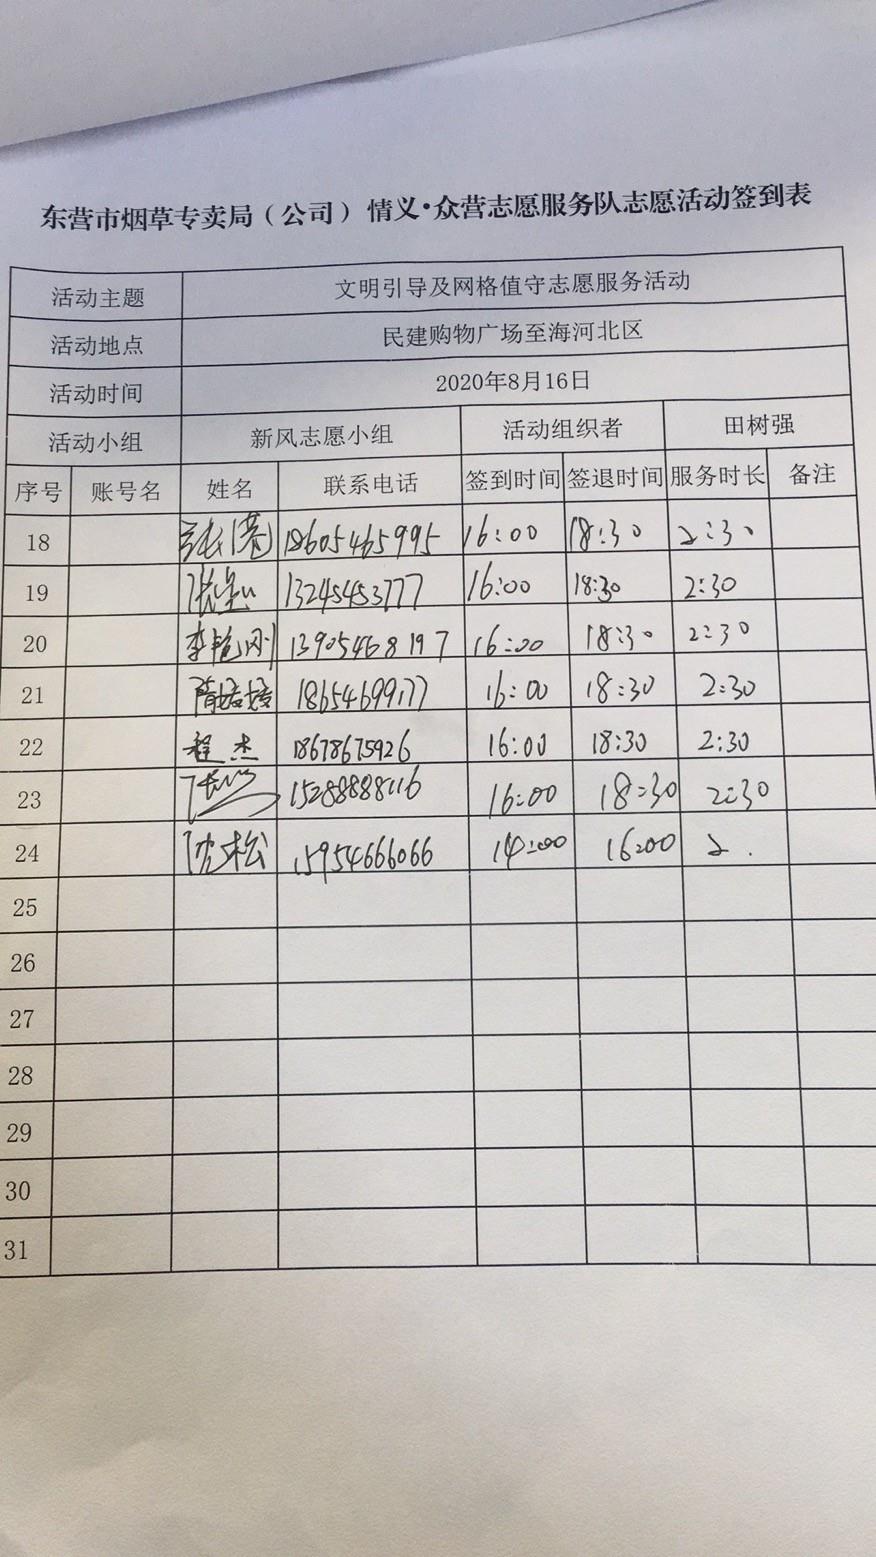 东营市烟草专卖局（公司）情义·众营志愿服务队志愿活动签到表
活动主题 文明引导及网格值守志愿服务活动
活动地点 民建购物广场至海河北区
活动时间 2020年8月16日
活动小组 新风志愿小组 活动组织者 田树强
序号 账号名 姓名 联系电话 签到时间 签退时间 服务时长 备注
18 18605465995 16:00 18:30 2:30
19 13245453777 16:00 18:30 2:30
20 李艳刚 13905468197 16:00 18:30 2:30
21 隋培培 18654699177 16:00 18:30 2:30
22 程杰 18678675926 16:00 18:30 2:30
23 15288888116 16:00 18:30 2:30
24 沈松 15954666066 14:00 16:00 2.
25
26
27
28
29
30
31